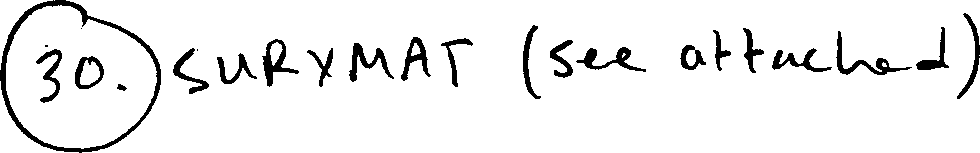 30. SURXMAT (see attached)